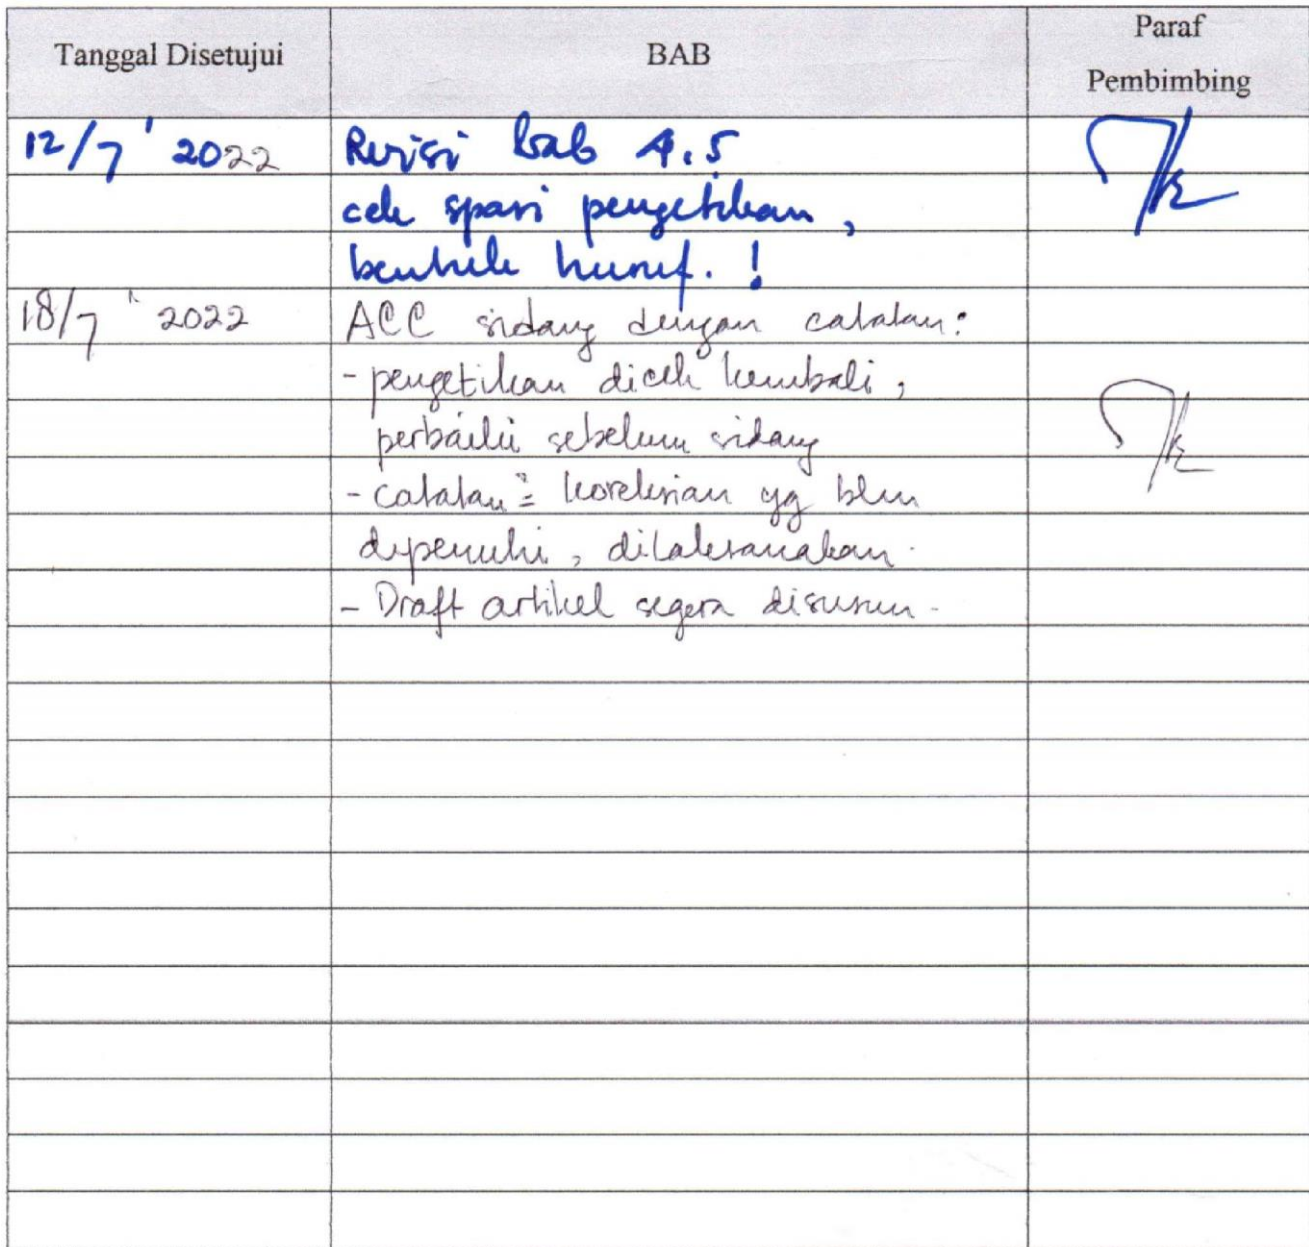 Tanggal Disetujui
BAB
Paraf
Pembimbing
12/7 ' 2022
Revisi bab 4.5
cek spasi pengetikan,
bentuk huruf. !
18/7 ' 2022
ACC sidang dengan catatan:
- pengetikan dicek kembali,
perbaiki sebelum sidang
- catatan² koreksian yg blm
dipenuhi, dilaksanakan.
- Draft artikel segera disusun.